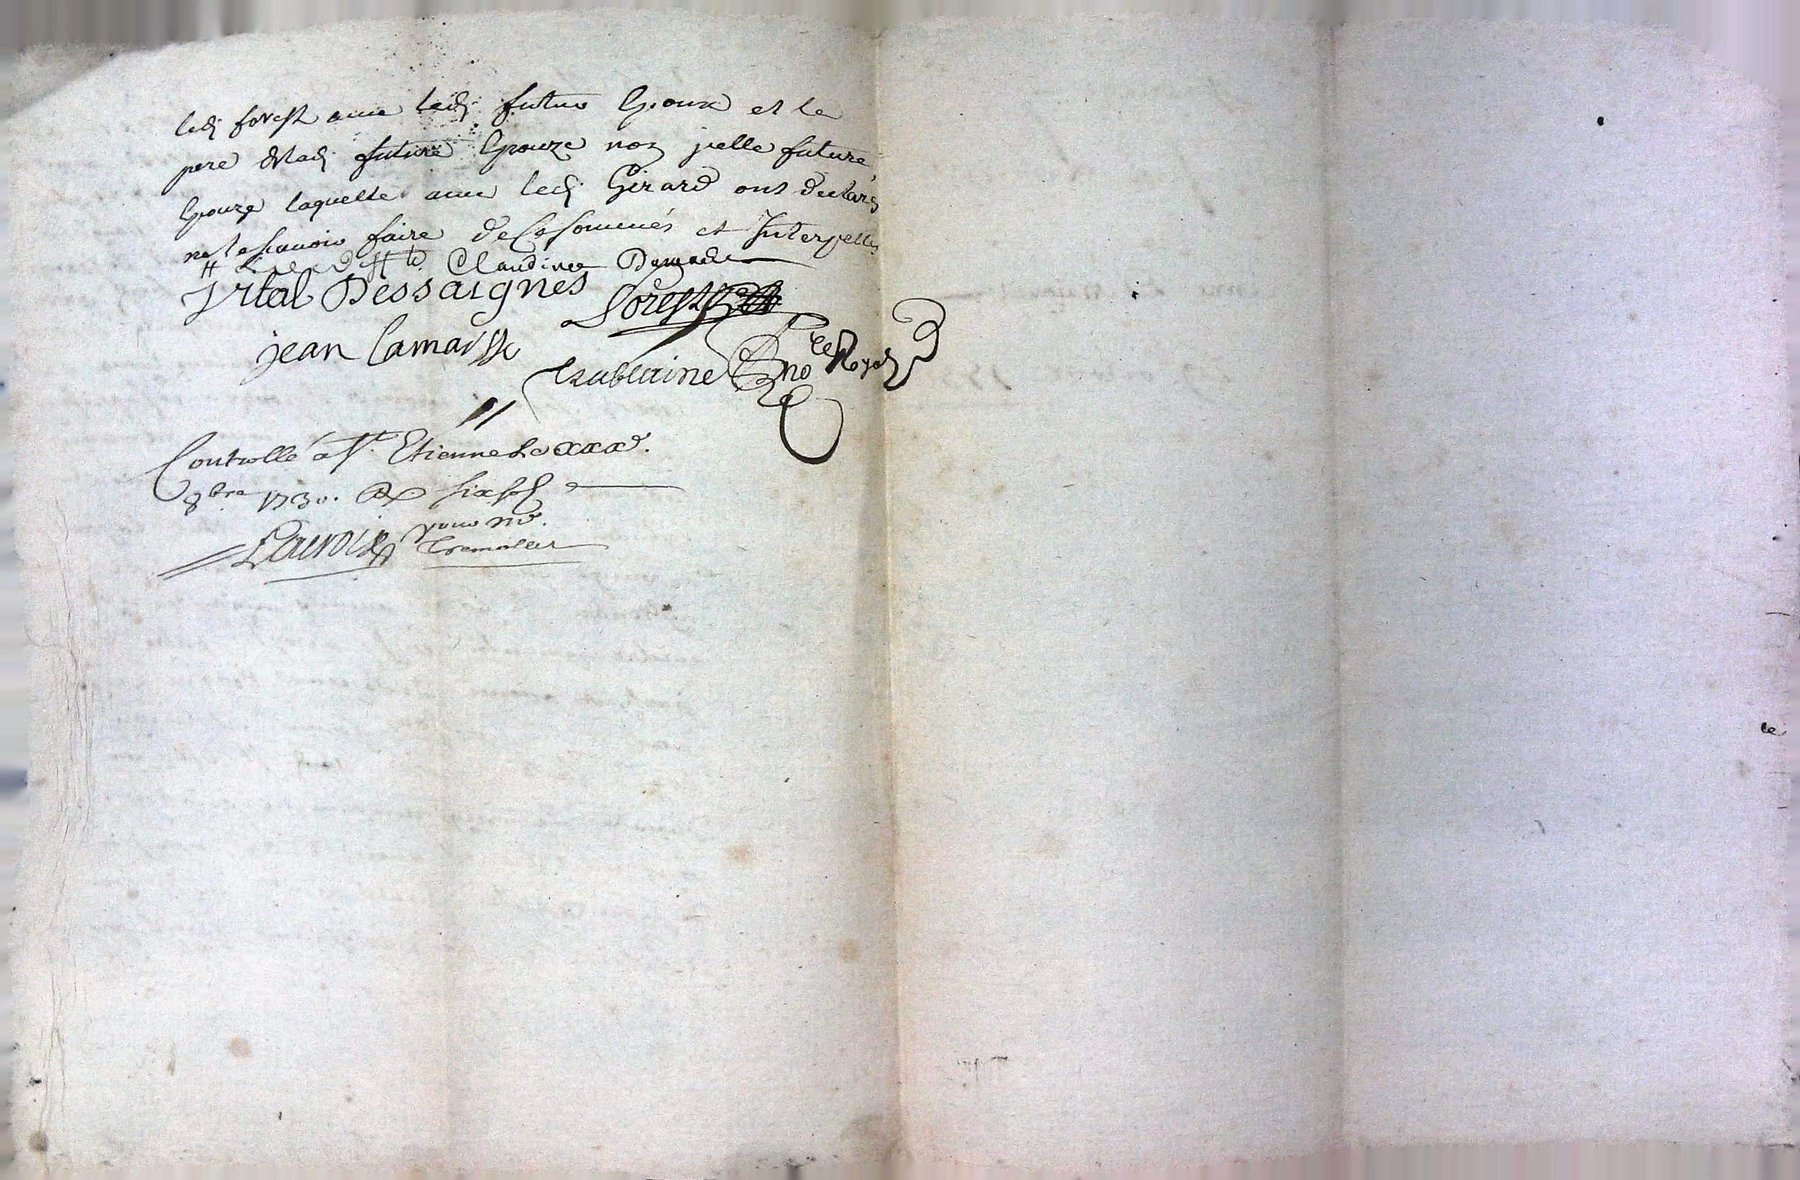 ledt forest avec ledt futur Epoux et le
pere de ladt future Epouze non jcelle future
Epouze laquelle avec ledt Girard ont declaré
ne le sçavoir faire de ce sommés et Interpellés
Claudine
Vital Dessaignes forest
jean Lamaisse
no.re Royal
Controllé a St. Etienne Le xxxe.
8bre 1730. six sols
pour Mr.